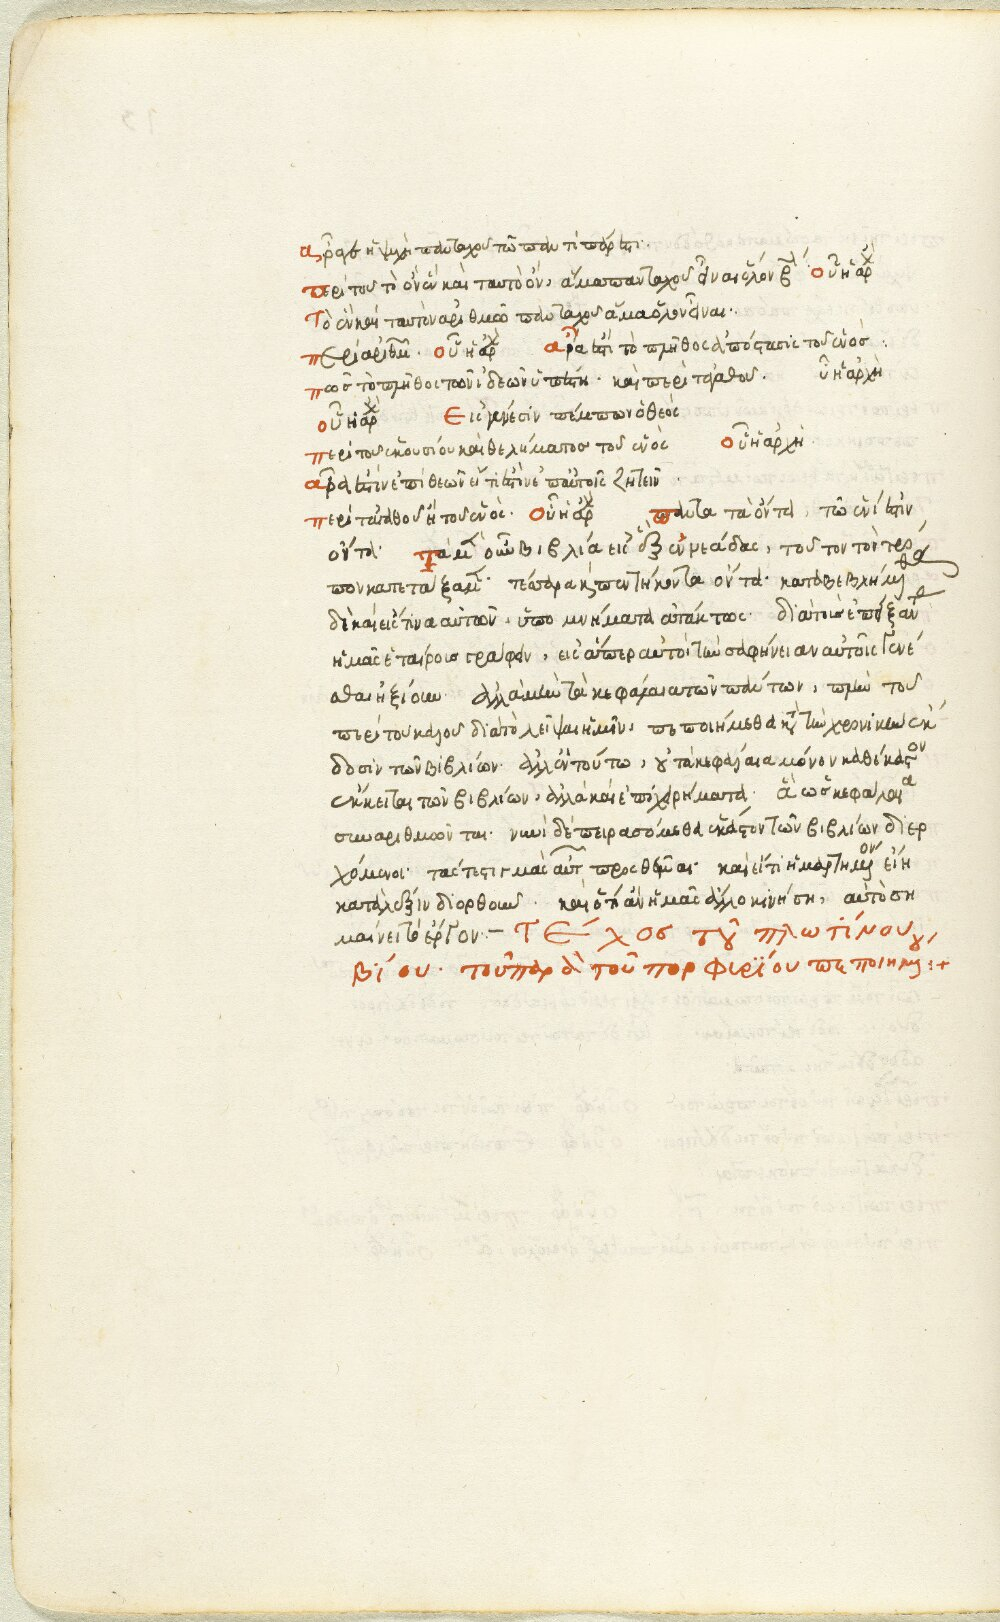 ἆρα ἡ ψυχὴ πανταχοῦ τῷ παντὶ πάρεστι·
περὶ τοῦ τὸ ὂν ἓν καὶ ταυτὸ ὂν, ἅμα πανταχοῦ εἶναι ὅλον β· οὗ ἡ ἀρχ
Τὸ ἓν καὶ ταυτὸν ἀριθμῷ πανταχοῦ ἅμα ὅλον εἶναι·
περὶ ἀριθμῶν· οὗ ἡ ἀρχ ἆρα ἐστὶ τὸ πλῆθος ἀπόστασις τοῦ ἑνός:
πῶς τὸ πλῆθος τῶν ἰδεῶν ὑπέστη· καὶ περὶ τἀγαθοῦ. οὗ ἡ ἀρχὴ
οὗ ἡ ἀρχ Εἰς γένεσιν πέμπων ὁ θεὸς
περὶ τοῦ ἑκουσίου καὶ θελήματος τοῦ ἑνὸς οὗ ἡ ἀρχὴ·
ἆρα ἐστὶν ἐπὶ θεῶν εἴ τι ἐστὶν ἐπ αὐτοῖς ζητεῖν·
περὶ τἀγαθοῦ ἢ τοῦ ἑνός· οὗ ἡ ἀρχ πάντα τὰ ὄντα, τῷ ἑνί ἐστιν
ὄντα· τὰ μὲν οὖν βιβλία εἰς ἓξ ἐννεάδας, τοῦτον τὸν τρό
πον κατετάξαμεν· τέσσαρα κ πεντήκοντα ὄντα· καταβεβλήμεθα
δὲ καὶ εἴς τινα αὐτῶν, ὑπομνήματα ἀτάκτως· διὰ τοὺς ἐπείξαντ
ἡμᾶς ἑταίρους γράφειν, εἰς ἅπερ αὐτοὶ τὴν σαφήνειαν αὐτοῖς γενέ
σθαι ἠξίουν· ἀλλὰ μὴν τὰ κεφάλαια τῶν πάντων, πλὴν τοῦ
περὶ τοῦ καλοῦ διὰ τὸ λεῖψαι ἡμῖν, πεποιήμεθα κατὰ τὴν χρονικὴν ἔκ
δοσιν τῶν βιβλίων· ἀλλ ἐν τούτω, οὐ τὰ κεφάλαια μόνον καθ ἕκαστον
ἔκκειται τῶν βιβλίων, ἀλλὰ καὶ ἐπιχειρήματα· ἃ ὡς κεφάλαια
συναριθμοῦνται· νυνὶ δὲ πειρασόμεθα ἕκαστον τῶν βιβλίων διερ
χόμενοι· τάς τε στιγμὰς αὐτ προσθεῖναι· καὶ εἴ τι ἡμαρτημένον εἴη
κατὰ λέξιν διορθοῦν· καὶ ὅ τι ἂν ἡμᾶς ἄλλο κινήση, αὐτὸ ση
μαίνει τὸ ἔργον:–
ΤΕλος τοῦ πλωτίνου
βίου· τοῦ παρὰ τοῦ πορφυρίου πεποιημένου:+